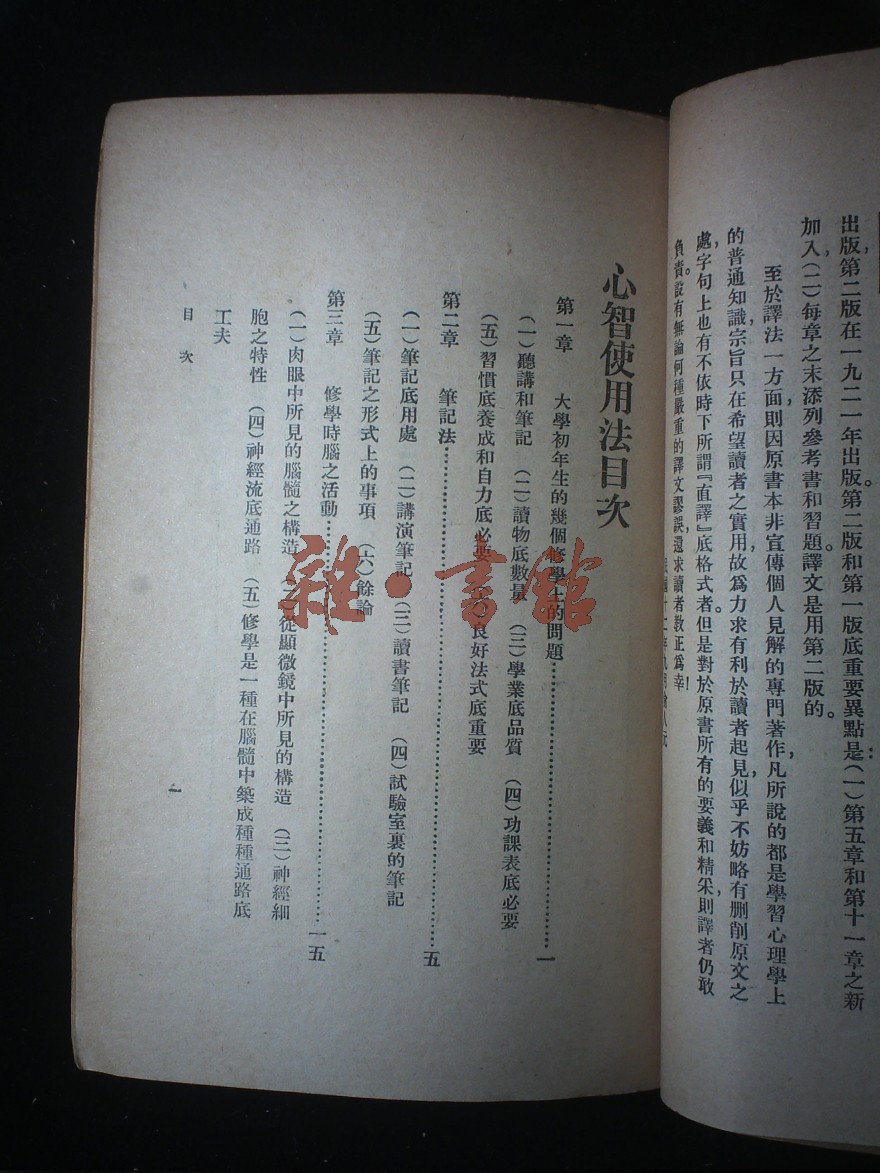 出版，第二版在一九二一年出版。第二版和第一版底重要異點是：（一）第五章和第十一章之新
加入，（二）每章之末添列參考書和習題。譯文是用第二版的。
至於譯法一方面，則因原書本非宣傳個人見解的專門著作，凡所說的都是學習心理學上
的普通知識，宗旨只在希望讀者之實用，故爲力求有利於讀者起見，似乎不妨略有刪削原文之
處，字句上也有不依時下所謂『直譯』底格式者。但是對於原書所有的要義和精采，則譯者仍敢
負責。設有無論何種嚴重的譯文謬誤，還求讀者教正爲幸！
心智使用法目次
第一章　大學初年生的幾個修學上的問題……一
（一）聽講和筆記　（二）讀物底數量　（三）學業底品質　（四）功課表底必要
（五）習慣底養成和自力底必要　（六）良好法式底重要
第二章　筆記法……五
（一）筆記底用處　（二）講演筆記　（三）讀書筆記　（四）試驗室裏的筆記
（五）筆記之形式上的事項　（六）餘論
第三章　修學時腦之活動……一五
（一）肉眼中所見的腦髓之構造　（二）從顯微鏡中所見的構造　（三）神經細
胞之特性　（四）神經流底通路　（五）修學是一種在腦髓中築成種種通路底
工夫
目次
一
雜·書館